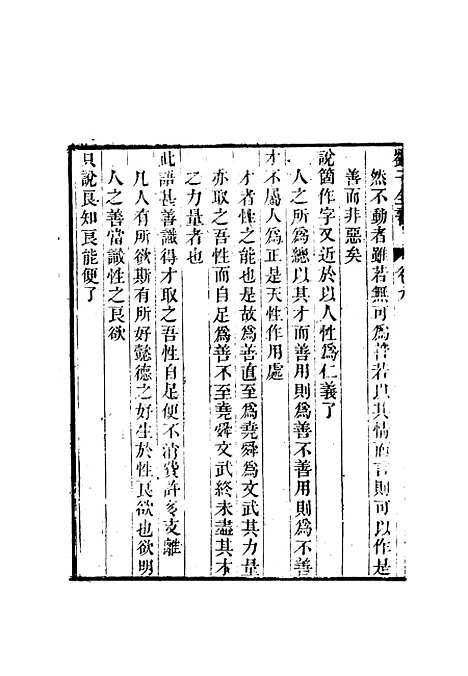 劉子全書 卷九
然不動者雖若無可為善若以其情而言則可以作是
善而非惡矣
說箇作字又近於以人性為仁義了
人之所為總以其才而善用則為善不善用則為不善
才不屬人為正是天性作用處
才者性之能也是故為善直至為堯舜為文武其力量
亦取之吾性而自足為善不至堯舜文武終未盡其才
之力量者也
此語甚善識得才取之吾性自足便不消費許多支離
凡人有所欲斯有所好懿德之好生於性良欲也欲明
人之善當識性之良欲
只說良知良能便了